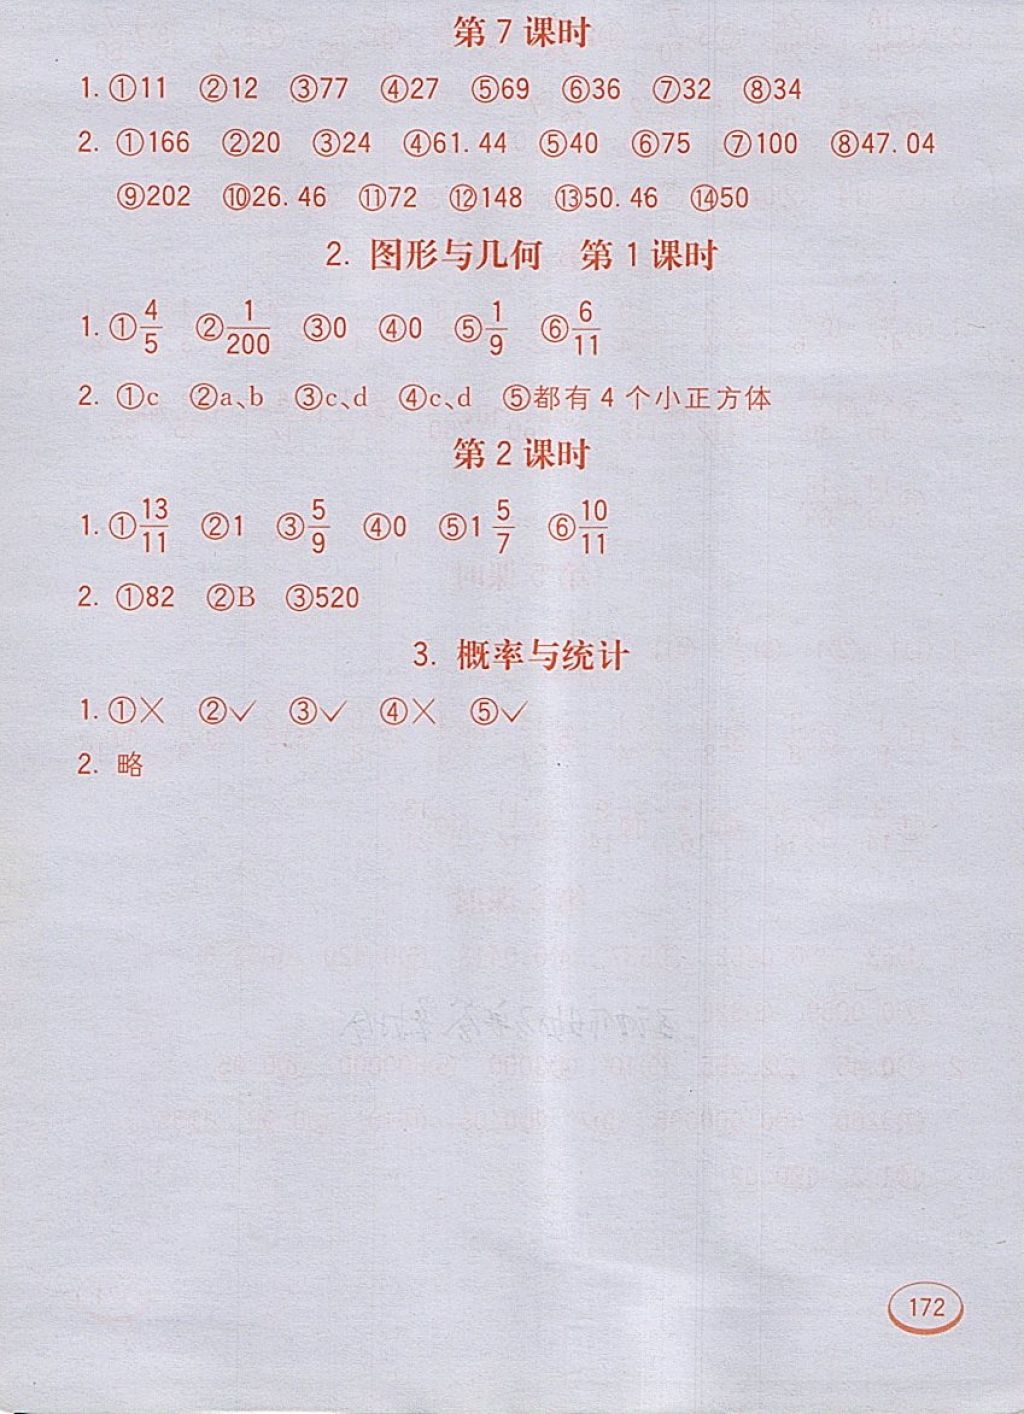 第 7 课时
1. ①11 ②12 ③77 ④27 ⑤69 ⑥36 ⑦32 ⑧34
2. ①166 ②20 ③24 ④61.44 ⑤40 ⑥75 ⑦100 ⑧47.04
⑨202 ⑩26.46 ⑪72 ⑫148 ⑬50.46 ⑭50
2. 图形与几何 第 1 课时
1. ①4/5 ②1/200 ③0 ④0 ⑤1/9 ⑥6/11
2. ①c ②a、b ③c、d ④c、d ⑤都有 4 个小正方体
第 2 课时
1. ①13/11 ②1 ③5/9 ④0 ⑤1 5/7 ⑥10/11
2. ①82 ②B ③520
3. 概率与统计
1. ①× ②✓ ③✓ ④× ⑤✓
2. 略
172